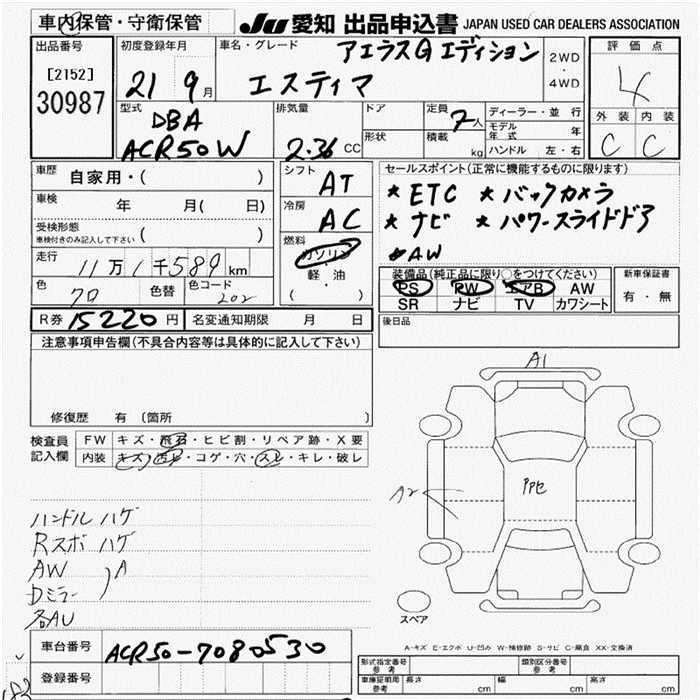 車内保管・守衛保管 JU 愛知 出品申込書 JAPAN USED CAR DEALERS ASSOCIATION
出品番号 [2152] 30987
初度登録年月 21 9月
車名・グレード アエラスG エディション エスティマ
2WD・4WD
評価点 4
外装 C 内装 C
型式 DBA ACR50W
排気量 2.36 CC
ドア 形状
定員 7人 積載 kg
ディーラー・並行
モデル年式 年
ハンドル 左・右
車歴 自家用・( )
車検 年 月( 日)
受検形態 車検付きのみ記入して下さい ( )
走行 11万1千589km
色 クロ 色替 色コード 202
シフト AT
冷房 AC
燃料 ガソリン・軽・油 ( )
セールスポイント(正常に機能するものに限ります)
* ETC * バックカメラ
* ナビ * パワースライドドア
* AW
装備品(純正品に限り○をつけてください)
PS PW エアB AW
SR ナビ TV カワシート
新車保証書 有・無
R券 15220円 名変通知期限 月 日
後日品
注意事項申告欄(不具合内容等は具体的に記入して下さい)
修復歴 有 (箇所
検査員記入欄
FW キズ・飛石・ヒビ割・リペア跡・X要
内装 キズ・汚レ・コゲ・穴・スレ・キレ・破レ
ハンドル ハゲ
Rスポ ハゲ
AW A
Dミラー
各AU
A1
A2
スペア
A-キズ E-エクボ U-凹み W-補修跡 S-サビ C-腐食 XX-交換済
車台番号 ACR50-7080530
登録番号
形式指定番号 参考 類別区分番号 参考
車庫証明用 参考 長さ cm 幅 cm 高さ cm